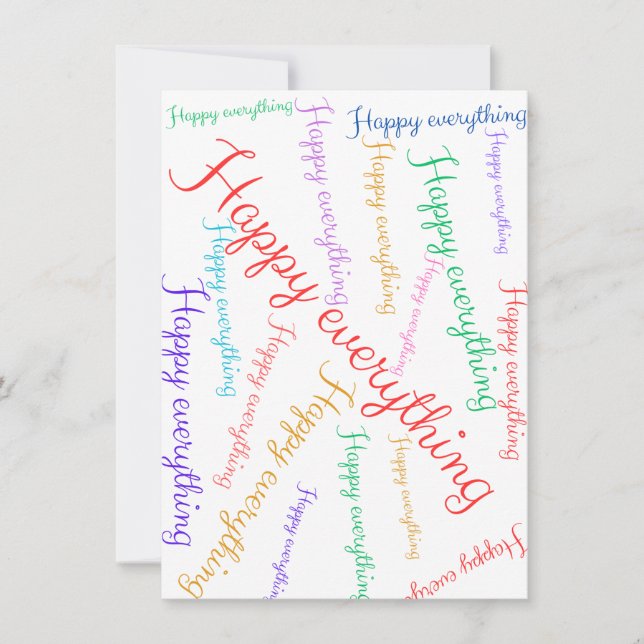 Happy everything
Happy everything
Happy everything
Happy everything
Happy everything
Happy everything
Happy everything
Happy everything
Happy everything
Happy everything
Happy everything
Happy everything
Happy everything
Happy everything
Happy everything
Happy everything
Happy everything
Happy everything